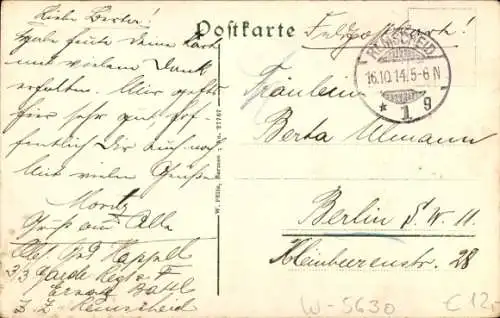 Liebe Berta!
Habe heute deine Karte
mit vielem Dank
erhalten. Mir geht's
hier sehr gut, hof-
fentlich Dir auch noch
Mit vielen Grüßen
Moritz
Gruß an Alle
Abs. Kappell
Garde Regt z. F.
Ersatz Batl.
Z. Z. Remscheid
W. Fülle, Barmen
Postkarte
Feldpostkarte!
REMSCHEID
16.10.14.5-6 N
* 1 g
Fräulein
Berta Ullmann
Berlin S. W. 11.
Kleinbeerenstr. 28
W-5630
€12,-